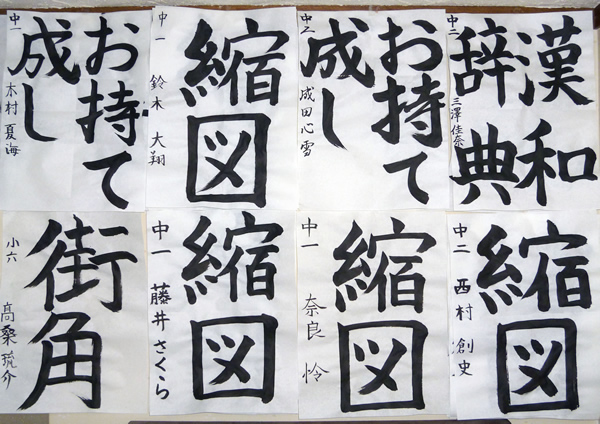 お持て
成し
中一 木村 夏海
縮図
中一 鈴木 大翔
お持て
成し
中二 成田心雪
漢和
辞典
中二 三澤佳奈
街角
小六 髙桑琉介
縮図
中一 藤井さくら
縮図
中一 奈良 怜
縮図
中二 西村 創史